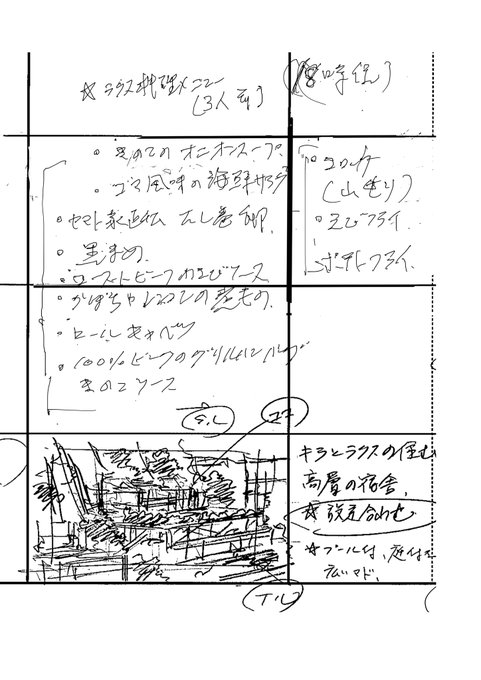 ☆ラクス料理メニュー
(3人前)
(18時頃)
・きのこのオニオンスープ
・ゴマ風味の海鮮サラダ
・ヤマト家直伝 だし巻卵
・黒まめ
・ローストビーフおよびソース
・かぼちゃとレモンの煮もの
・ロールキャベツ
・100%ビーフのグリルハンバーグ
きのこソース
・コロッケ
(山もり)
・えびフライ
・ポテトフライ
キラとラクスの住む
高層の宿舎
☆設定合わせ
☆プール付、庭付で
広いマド。